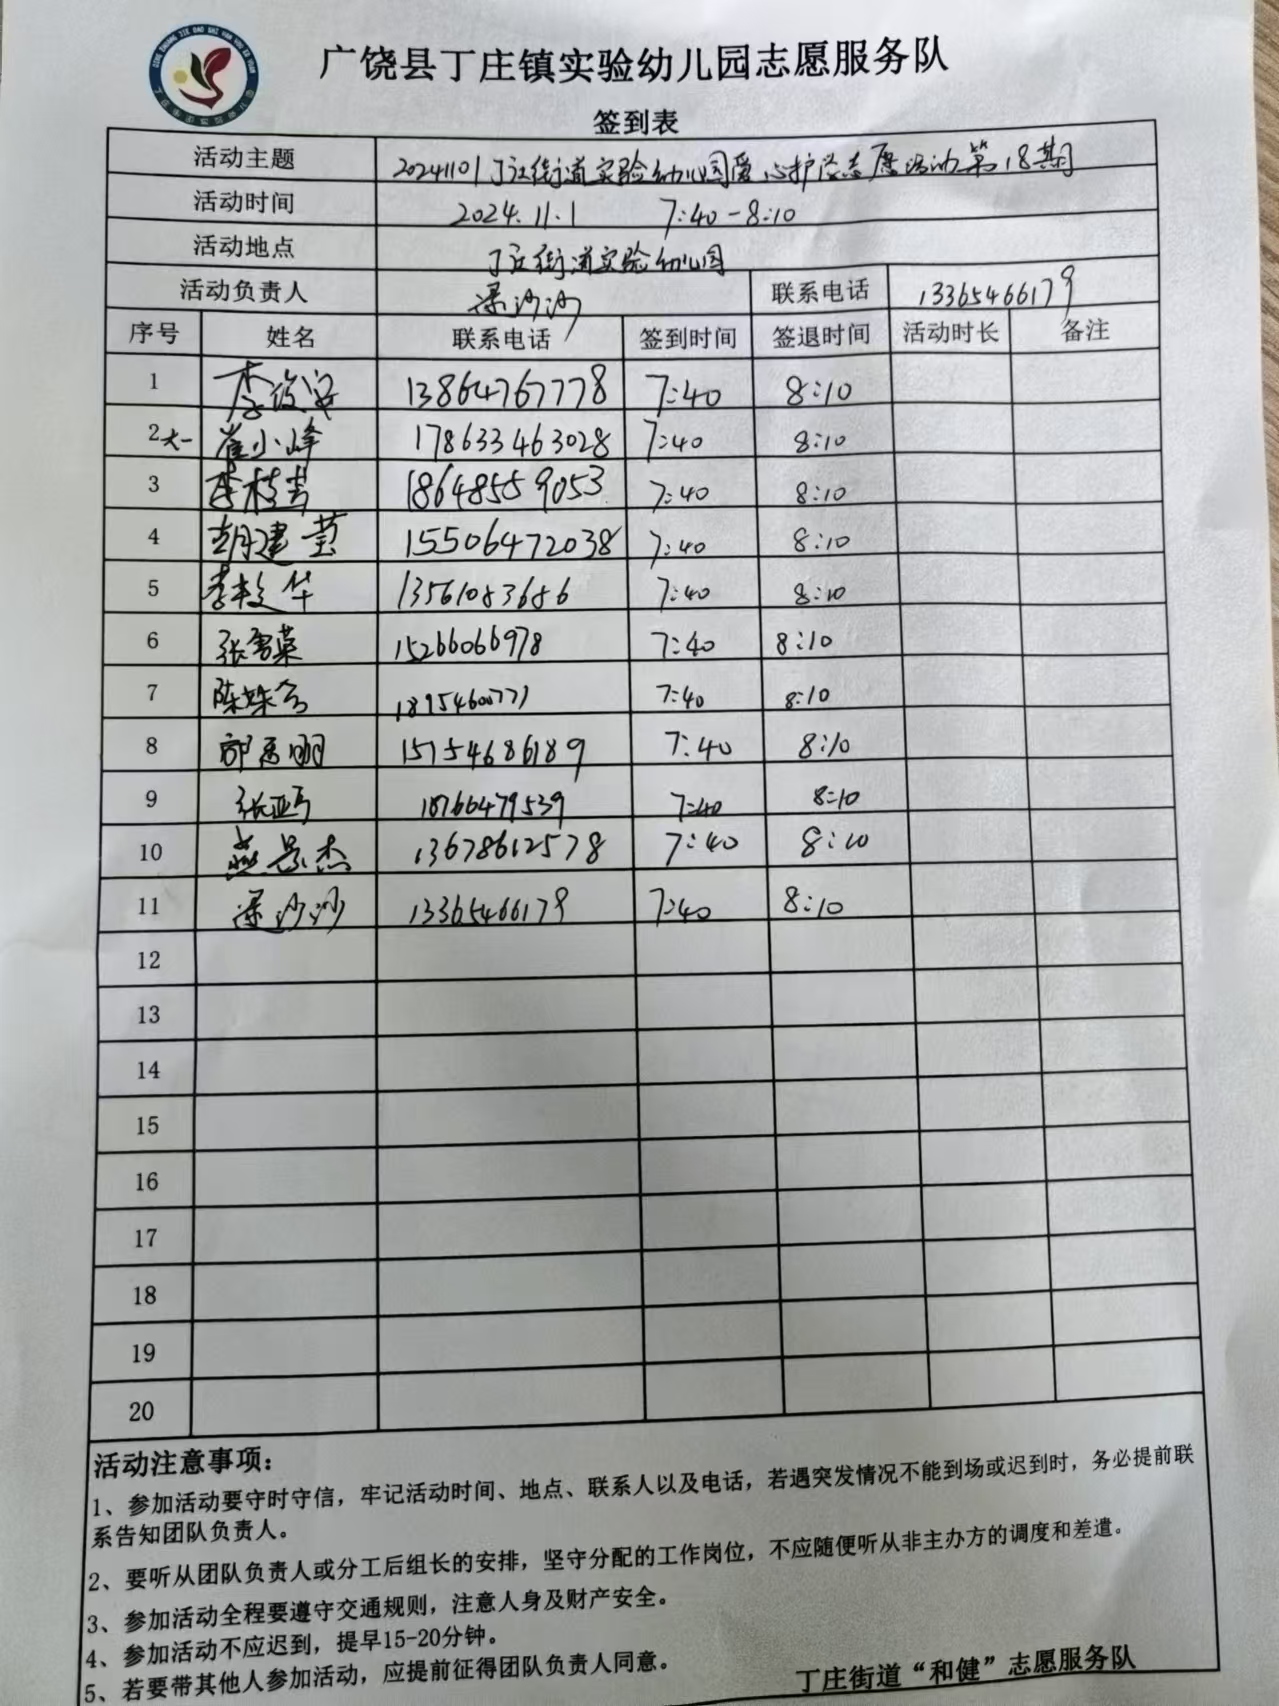 广饶县丁庄镇实验幼儿园志愿服务队
签到表
活动主题 20241101丁庄街道实验幼儿园爱心护学志愿活动第18期
活动时间 2024.11.1 7:40-8:10
活动地点 丁庄街道实验幼儿园
活动负责人 梁沙沙 联系电话 13365466179
序号 姓名 联系电话 签到时间 签退时间 活动时长 备注
1 13864767778 7:40 8:10
2大一 崔小峰 178633463028 7:40 8:10
3 18648559053 7:40 8:10
4 胡建莹 15506472038 7:40 8:10
5 13561083686 7:40 8:10
6 张雪菜 15266066978 7:40 8:10
7 7:40 8:10
8 15754686189 7:40 8:10
9 18766479539 7:40 8:10
10 燕景杰 13678612578 7:40 8:10
11 梁沙沙 13365466179 7:40 8:10
12
13
14
15
16
17
18
19
20
活动注意事项：
1、参加活动要守时守信，牢记活动时间、地点、联系人以及电话，若遇突发情况不能到场或迟到时，务必提前联
系告知团队负责人。
2、要听从团队负责人或分工后组长的安排，坚守分配的工作岗位，不应随便听从非主办方的调度和差遣。
3、参加活动全程要遵守交通规则，注意人身及财产安全。
4、参加活动不应迟到，提早15-20分钟。
5、若要带其他人参加活动，应提前征得团队负责人同意。
丁庄街道“和健”志愿服务队